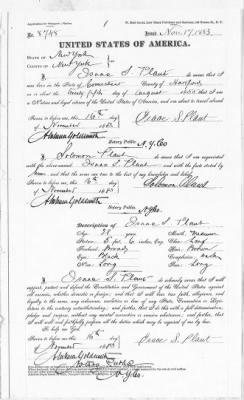 No. 8748
Issued Nov. 17, 1883.
UNITED STATES OF AMERICA.
STATE OF New York
COUNTY OF New York
I, Isaac S. Plaut do swear that I was
born in the State of Connecticut County of Hartford
on or about the twenty fifth day of August
a Native and loyal Citizen of the United States of America, and am about to travel abroad
Sworn to before me this 16th day
of November 1883
Isaac S Plaut
Abraham Goldsmith
Notary Public N.Y. Co
I, Solomon Plaut do swear that I am acquainted
with the above-named Isaac S. Plaut and with the facts stated by
him and that the same are true to the best of my knowledge and belief.
Sworn to before me this 16th day
of November 1883
Solomon Plaut
Abraham Goldsmith
Notary Public N.Y. Co.
Description of Isaac S. Plaut
Age, 28 years
Mouth, Medium
Stature, 5 feet, 6 inches, Eng.
Chin, Long
Forehead, Broad
Hair, Brown
Eyes, Black
Complexion,
Nose, Long
Face, Long
I, Isaac S. Plaut do solemnly swear that I will
support, protect and defend the Constitution and Government of the United States against
all enemies, whether domestic or foreign; and that I will bear true faith, allegiance and
loyalty to the same, any ordinance, resolution or law of any State, Convention or Legis-
lature to the contrary notwithstanding; and further, that I do this with a full determination,
pledge and purpose, without any mental reservation or evasion whatsoever; and further, that
I will well and faithfully perform all the duties which may be required of me by law.
So help me God.
Sworn to before me this 16th day
of November 1883
Isaac S. Plaut
Abraham Goldsmith
Notary Public
N.Y. Co